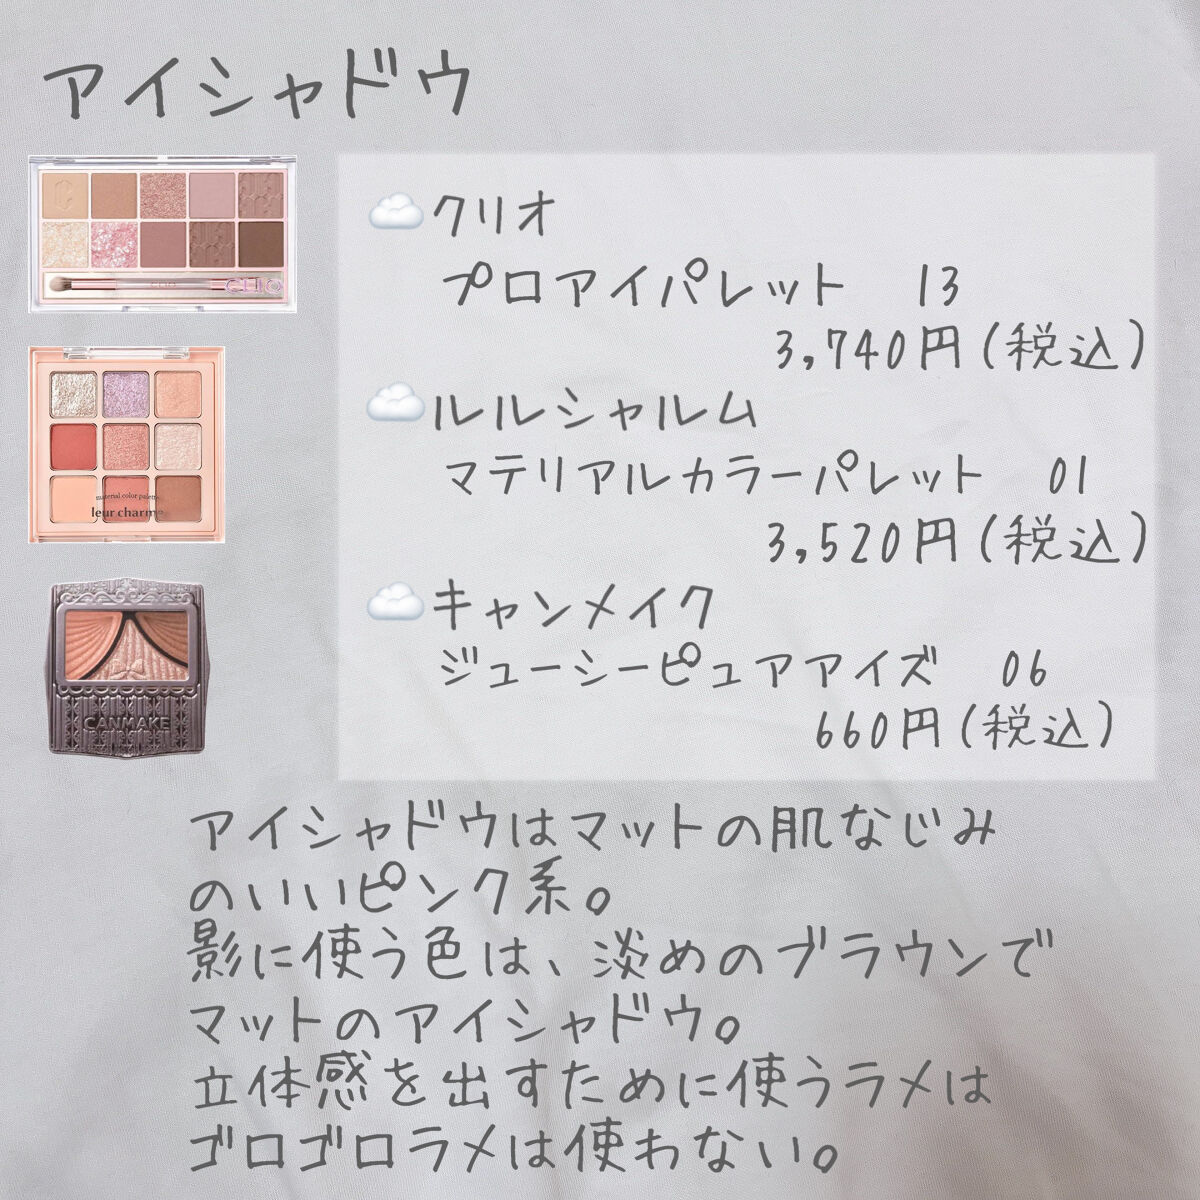 アイシャドウ
クリオ
プロアイパレット 13
3,740円(税込)
ルルシャルム
マテリアルカラーパレット 01
3,520円(税込)
キャンメイク
ジューシーピュアアイズ 06
660円(税込)
CLIO
material color palette
leur charme
CANMAKE
アイシャドウはマットの肌なじみ
のいいピンク系。
影に使う色は、淡めのブラウンで
マットのアイシャドウ。
立体感を出すために使うラメは
ゴロゴロラメは使わない。